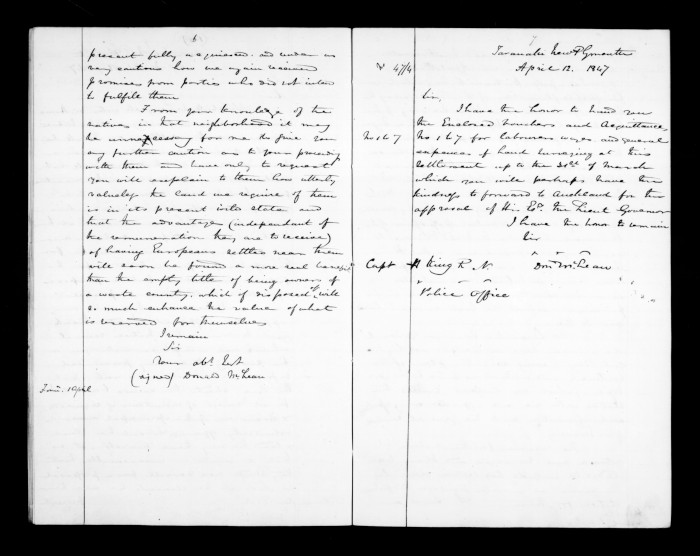 6
present fully acquiesced and under us
very cautious how we again received
promises from parties who did not intend
to fulfill them
From your knowledge of the
natives in that neighborhood it may
be unnecessary for me to give you
any further caution as to your proceedings
with them and have only to request
you will explain to them how utterly
valueless the land we require of them
is in its present state and
that the advantage (independant of
the remuneration they are to receive)
of having Europeans settled near them
will soon be found a more real benefit
than the empty title of being owners of
a waste country, which if disposed of will
so much enhance the value of what
is reserved for themselves
I remain
Sir
Your obt Svt
(signed) Donald McLean
April
7
Taranaki New Plymouth
April 12. 1847
47/4
Sir,
I have the honor to send you
the Enclosed Vouchers and Acquittances
No 1 to 7
No 1 to 7 for labourers wages and general
expenses of Land Surveying at this
settlement up to the 30th of March
which you will perhaps have the
kindness to forward to Auckland for the
approval of His Ex. the Lieut Governor
I have the honor to remain
Sir
Capt H King R. N.
Don McLean
Police Office